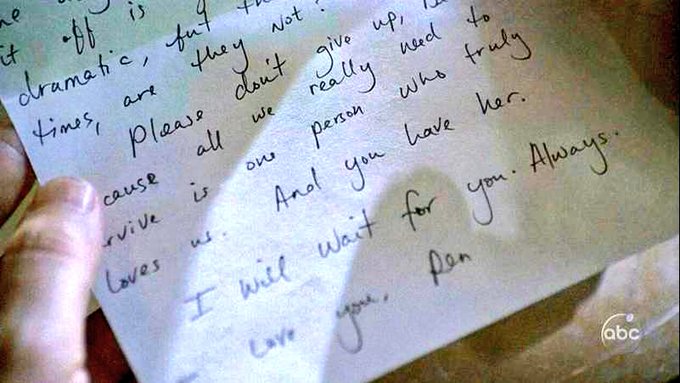 it off is
dramatic, but the
times, are they not?
Please don't give up,
cause all we really need to
rvive is one person who truly
loves us. And you have her.
I will wait for you. Always.
I love you, Pen
abc